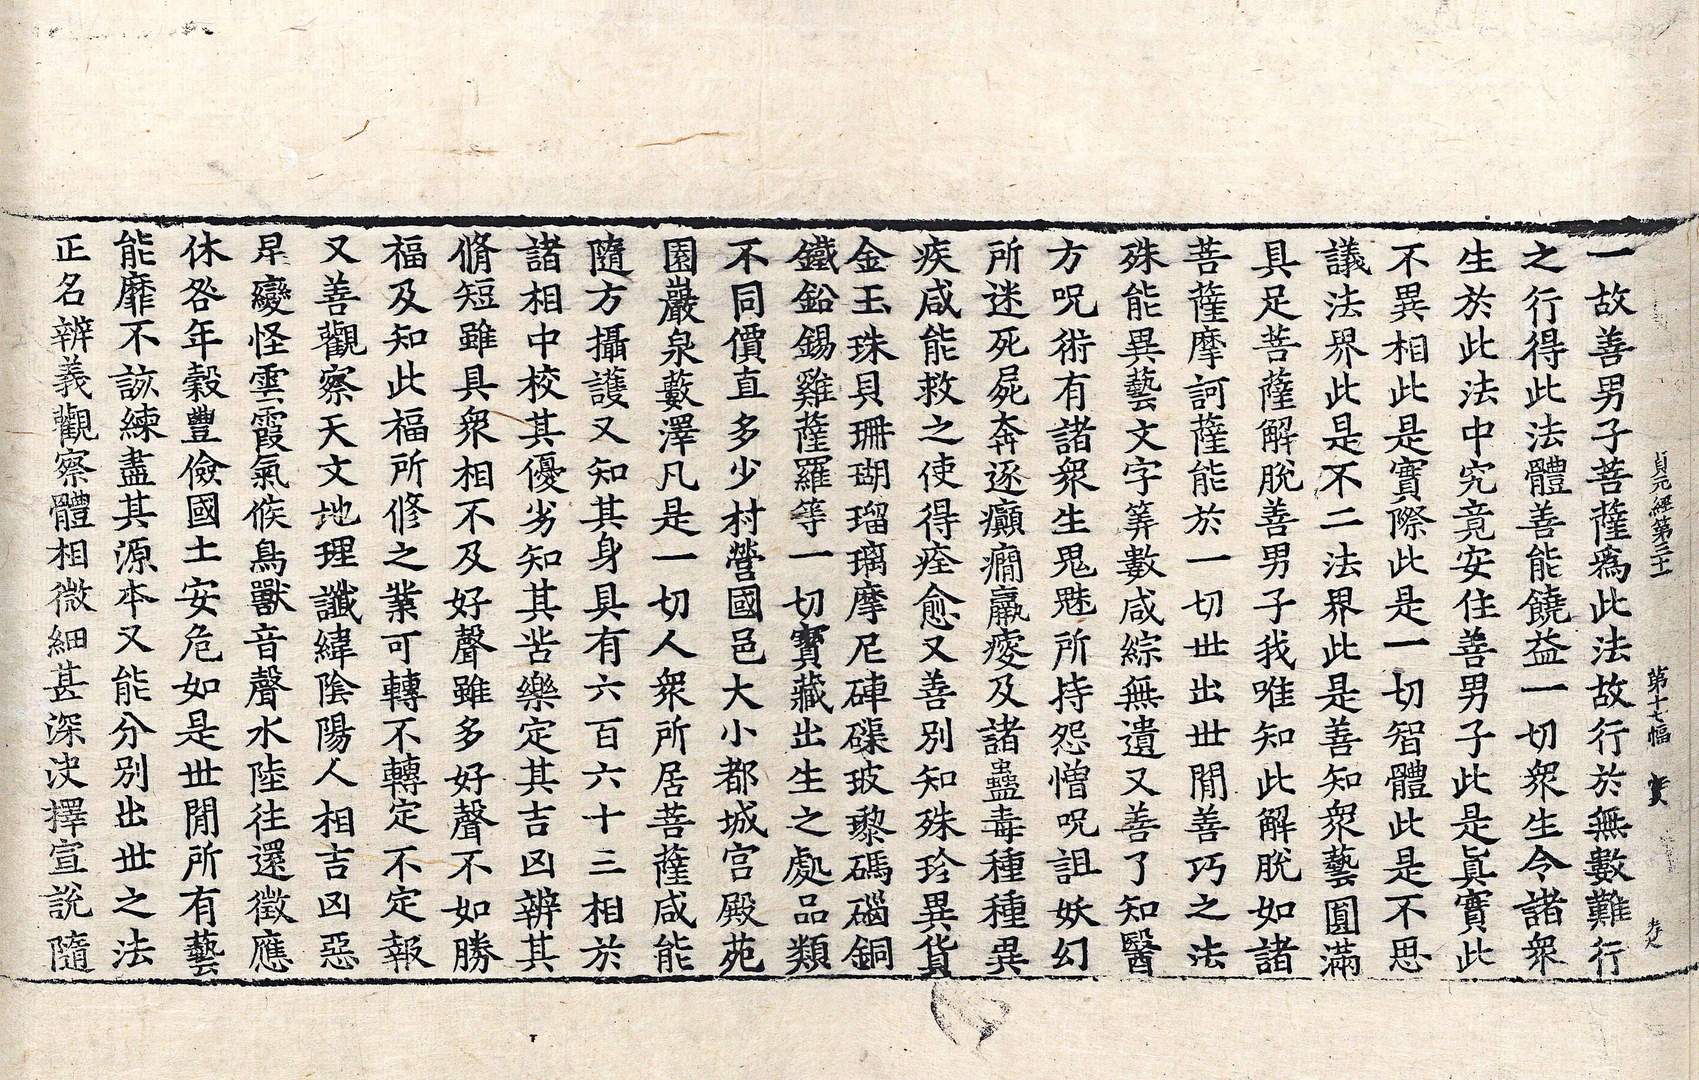 貞元經第三十一 第十七幅 實
一故善男子菩薩爲此法故行於無數難行
之行得此法體善能饒益一切衆生令諸衆
生於此法中究竟安住善男子此是眞實此
不異相此是實際此是一切智體此是不思
議法界此是不二法界此是善知衆藝圓滿
具足菩薩解脫善男子我唯知此解脫如諸
菩薩摩訶薩能於一切世出世閒善巧之法
殊能異藝文字筭數咸綜無遺又善了知醫
方呪術有諸衆生鬼魅所持怨憎呪詛妖幻
所迷死屍奔逐癲癎羸瘦及諸蠱毒種種異
疾咸能救之使得痊愈又善別知殊珍異貨
金玉珠貝珊瑚瑠璃摩尼硨磲玻瓈碼碯銅
鐵鉛錫雞薩羅等一切寶藏出生之處品類
不同價直多少村營國邑大小都城宮殿苑
園巖泉藪澤凡是一切人衆所居菩薩咸能
隨方攝護又知其身具有六百六十三相於
諸相中校其優劣知其苦樂定其吉凶辨其
脩短雖具衆相不及好聲雖多好聲不如勝
福及知此福所修之業可轉不轉定不定報
又善觀察天文地理讖緯陰陽人相吉凶惡
星變怪雲霞氣候鳥獸音聲水陸往還徵應
休咎年穀豐儉國土安危如是世閒所有藝
能靡不該練盡其源本又能分別出世之法
正名辨義觀察體相微細甚深決擇宣說隨